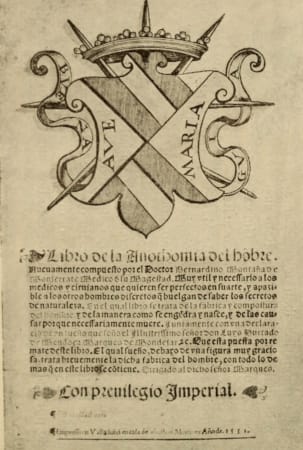 AVE
MARIA
Libro de la Anothomia del hõbre.
Nueuamente compuesto por el Doctor Bernardino Montaña de
Monserrate Medico d su Magestad. Muy vtil y necessario a los
medicos y cirujanos que quieren ser perfectos en su arte, y apazi
ble a los otros hombres discretos q̃ huelgan de saber los secretos
de naturaleza. En el qual libro se trata de la fabrica y compostura
del hombre, y de la manera como se engẽdra y nasce, y de las cau
sas porque necessariamente muere. Juntamente con vna declara
cion de vn sueño que soño el Illustrissimo señor don Luys Hurtado
de Mendoça Marques de Mondejar &c. Que esta puesta por re
mate deste libro. El qual sueño, debaxo de vna figura muy gracio
sa, trata breuemente la dicha fabrica del hombre, con todo lo de
mas q̃ en este libro se cõtiene. Dirigido al dicho señor Marques.
Con preuilegio Imperial.
Impresso en Valladolid en casa de Martinez Año de. 1551.